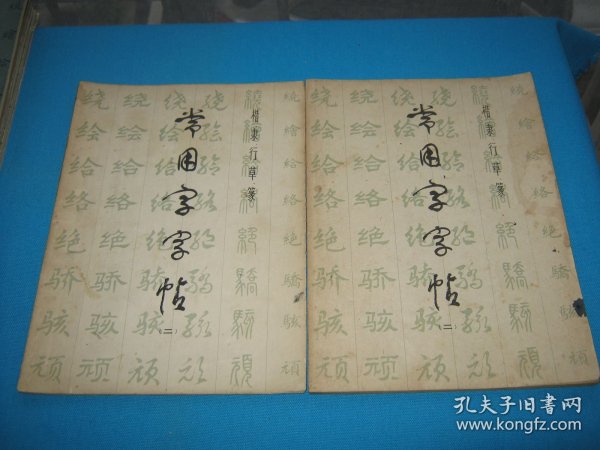 楷隶行草篆
常用字字帖
(二)
绕 绕 绕 绕 绕 繞 繞
绘 绘 绘 绘 繪 繪
给 给 给 给 給 給
络 络 络 络 絡 絡
绝 绝 绝 绝 絕 絕
骄 骄 骄 骄 驕 驕
骇 骇 骇 骇 駭 駭
顽 顽 顽 顽 頑 頑
楷隶行草篆
常用字字帖
(二)
绕 绕 绕 绕 绕 繞 繞
绘 绘 绘 绘 繪 繪
给 给 给 给 給 給
络 络 络 络 絡 絡
绝 绝 绝 绝 絕 絕
骄 骄 骄 骄 驕 驕
骇 骇 骇 骇 駭 駭
顽 顽 顽 顽 頑 頑
孔夫子旧书网
www.kongfz.com